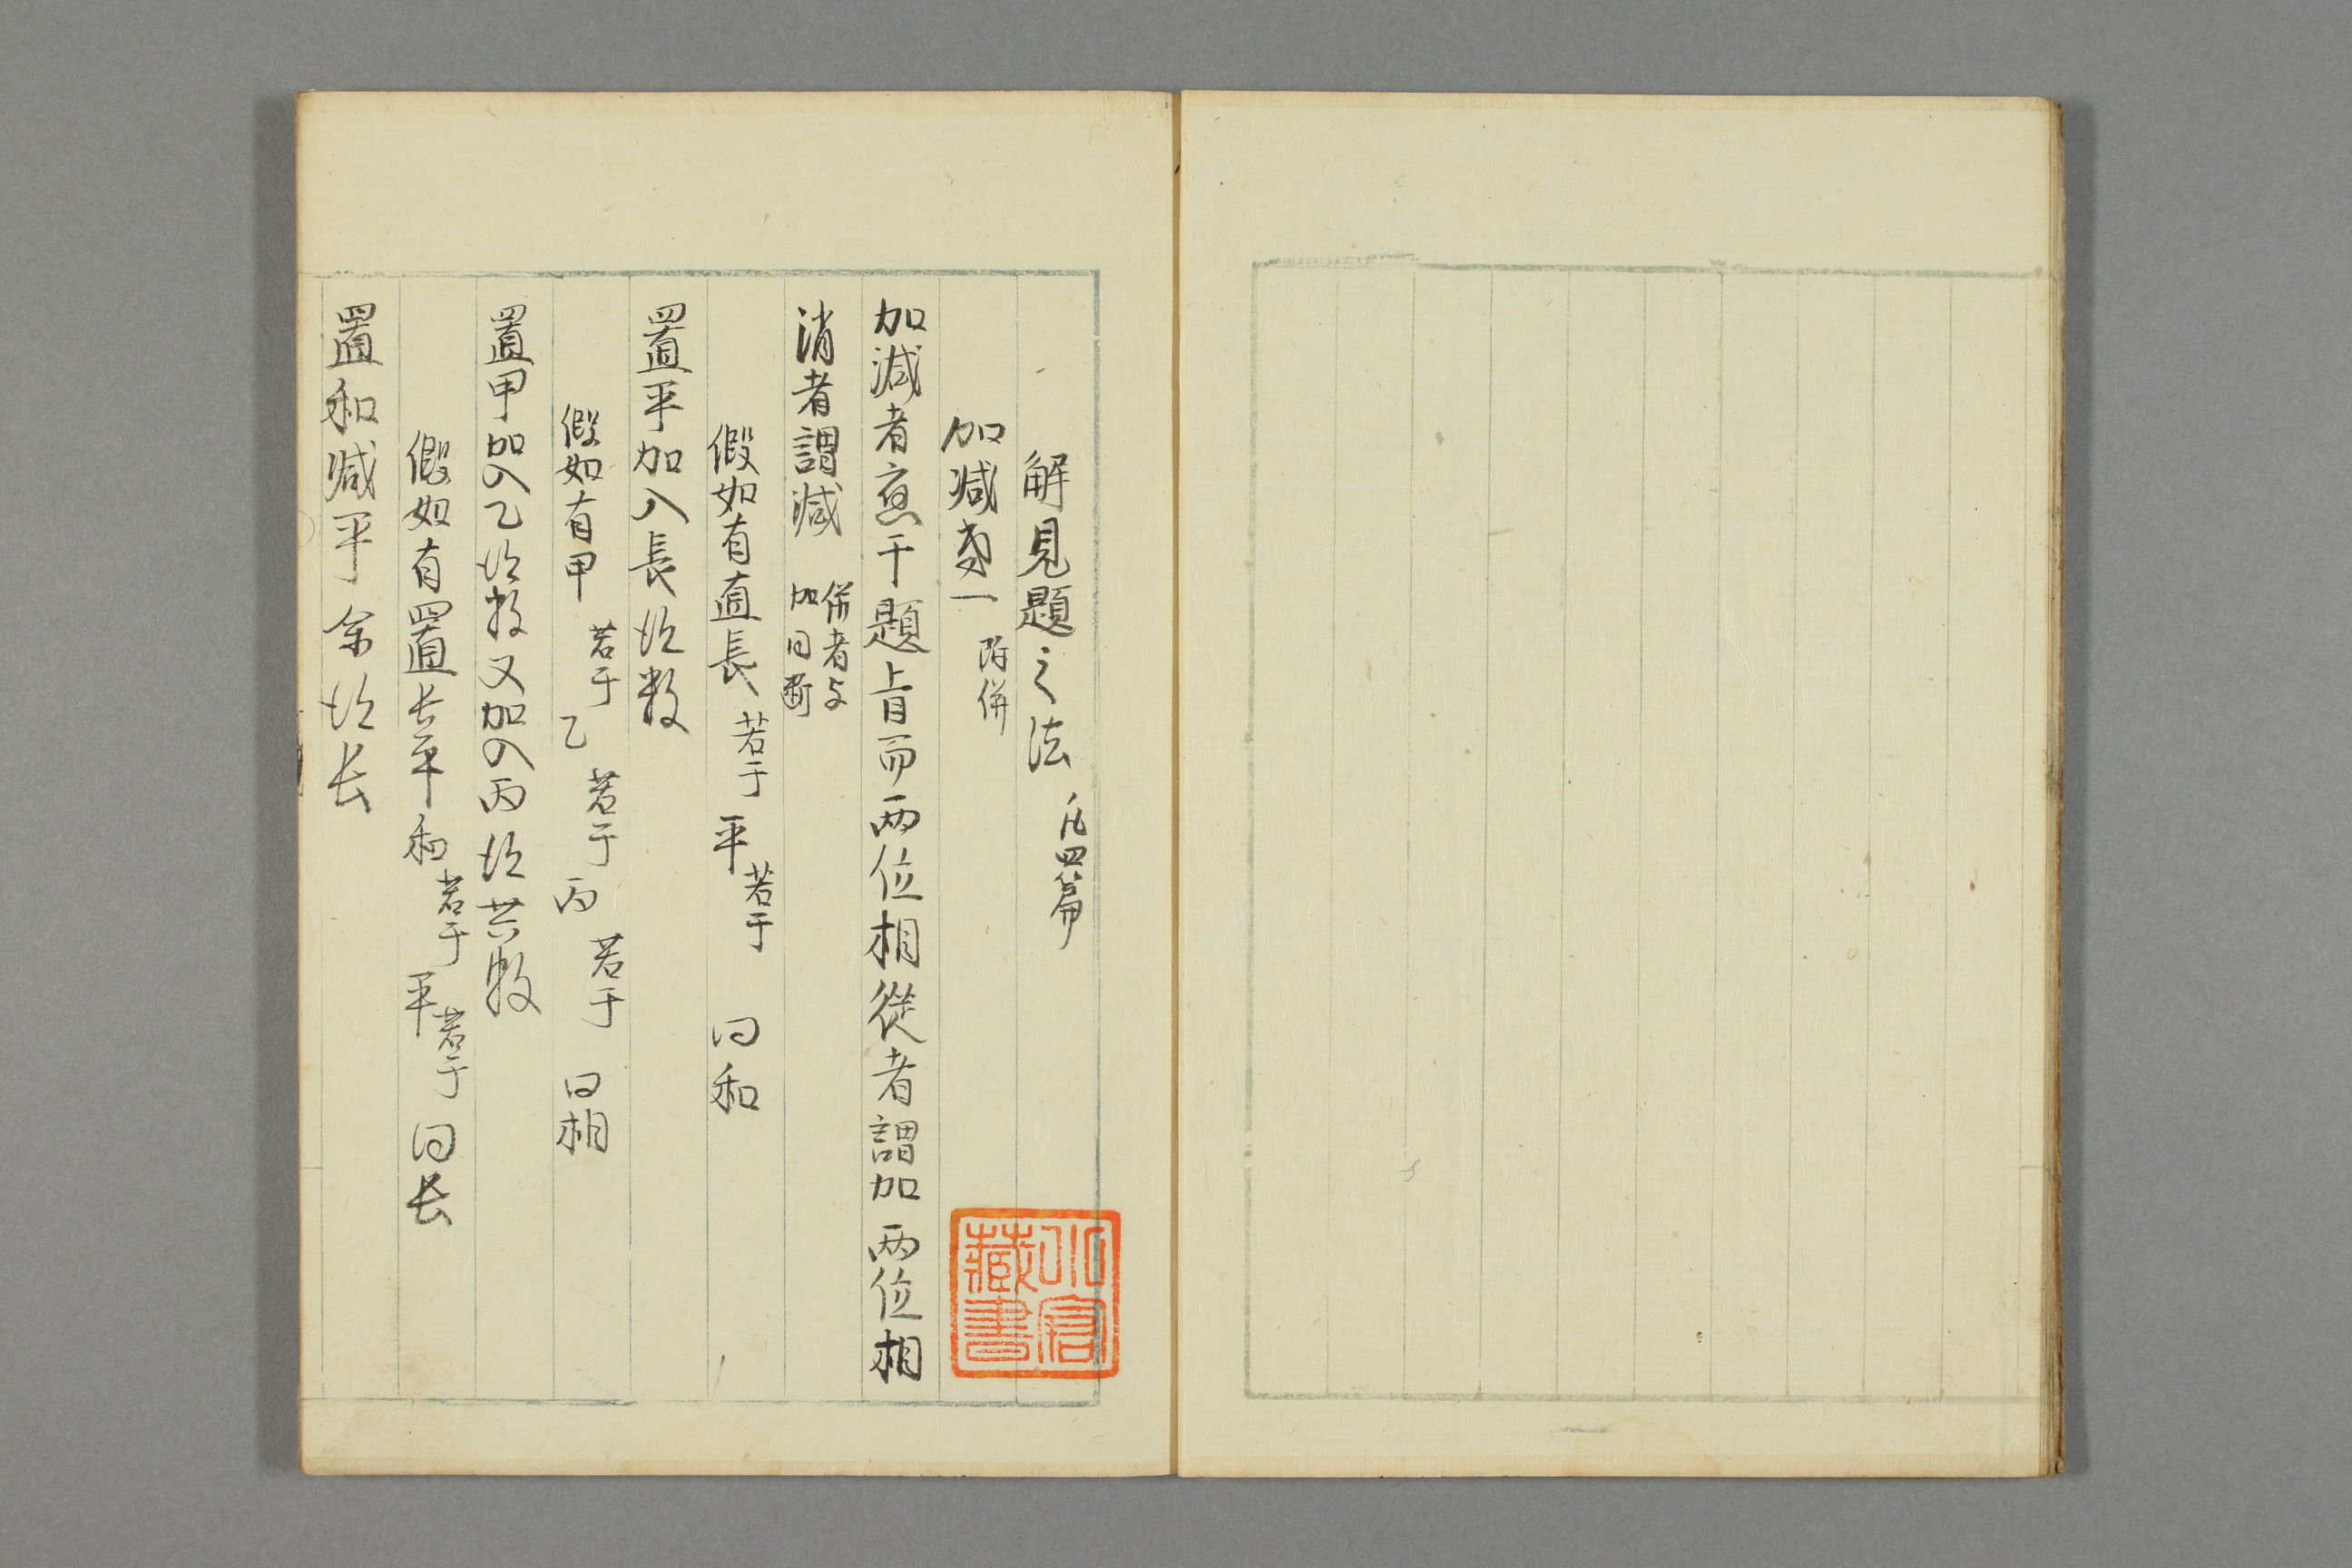 解見題之法 凡四篇
加減第一 附併
加減者應干題旨而両位相從者謂加両位相
消者謂減 併者与加同断
假如有直長若干平若干 問和
置平加入長得数
假如有甲若干乙若干丙若干 問相
置甲加入乙得数又加入丙得共数
假如有置长平和若干平若干問长
置和減平余得长
小倉藏書